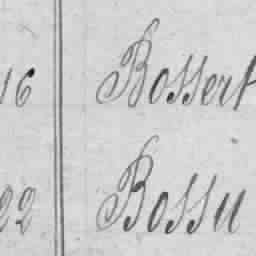 16 Bossert
22 Bossu